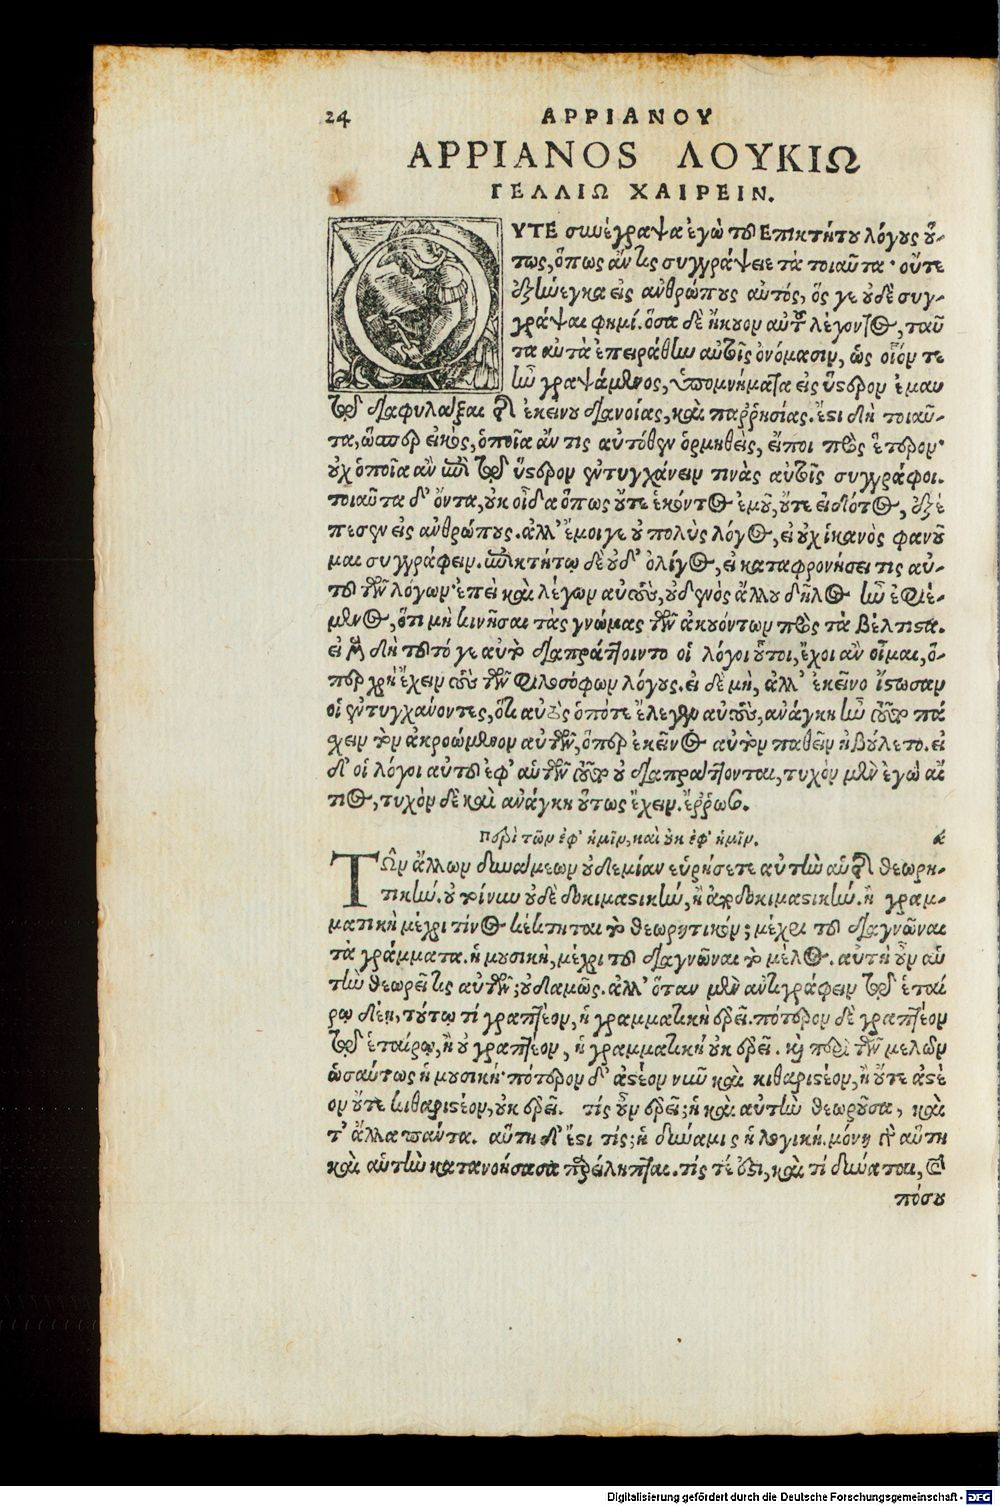 24 ΑΡΡΙΑΝΟΥ
ΑΡΡΙΑΝΟS ΛΟΥΚΙΩ
ΓΕΛΛΙΩ ΧΑΙΡΕΙΝ.
ΟΥΤΕ συνέγραψα ἐγὼ τοῦ Επικτήτου λόγους οὕ-
τως, ὅπως ἄν τις συγγράψειε τὰ τοιαῦτα· οὔτε
ἐξήνεγκα εἰς ἀνθρώπους αὐτός, ὅς γε οὐδὲ συγ-
γράψαι φημί. ὅσα δὲ ἤκουον αὐτοῦ λέγοντος, ταῦ
τα αὐτὰ ἐπειράθην αὐτοῖς ὀνόμασιν, ὡς οἷόν τε
ἦν γραψάμενος, ὑπομνήματα εἰς ὕστερον ἐμαυ
τῷ διαφυλάξαι τῆς ἐκείνου διανοίας, καὶ παῤῥησίας. ἔστι δὴ τοιαῦ-
τα, ὥσπερ εἰκὸς, ὁποῖα ἄν τις αὐτόθεν ὁρμηθεὶς, εἴποι πρὸς ἕτερον·
οὐχ ὁποῖα ἂν ἐπὶ τῷ ὕστερον ἐντυγχάνειν τινὰς αὐτοῖς συγγράφοι.
τοιαῦτα δ' ὄντα, οὐκ οἶδα ὅπως οὔτε ἑκόντος ἐμοῦ, οὔτε εἰδότος, ἐξέ
πεσεν εἰς ἀνθρώπους. ἀλλ' ἔμοιγε οὐ πολὺς λόγος, εἰ οὐχ ἱκανὸς φανοῦ
μαι συγγράφειν. ἐπικτήτῳ δὲ οὐδ' ὀλίγος, εἰ καταφρονήσει τις αὐ-
τοῦ τῶν λόγων· ἐπεὶ καὶ λέγων αὐτοὺς, οὐδενὸς ἄλλου δῆλος ἦν ἐφιέ-
μενος, ὅτι μὴ κινῆσαι τὰς γνώμας τῶν ἀκουόντων πρὸς τὰ βέλτιστα.
εἰ μὲν δὴ τοῦτό γε αὐτὸ διαπράττοιντο οἱ λόγοι οὗτοι, ἔχοι ἂν οἶμαι, ὅ-
περ χρὴ ἔχειν τοὺς τῶν φιλοσόφων λόγους. εἰ δὲ μὴ, ἀλλ' ἐκεῖνο ἴστωσαν
οἱ ἐντυγχάνοντες, ὅτι αὐτὸς ὁπότε ἔλεγεν αὐτοὺς, ἀνάγκη ἦν τοῦτο πά
σχειν τὸν ἀκροώμενον αὐτῶν, ὅπερ ἐκεῖνος αὐτὸν παθεῖν ἠβούλετο. εἰ
δ' οἱ λόγοι αὐτοῦ ἐφ' αὑτῶν τοῦτο οὐ διαπράττονται, τυχὸν μὲν ἐγὼ αἴ
τιος, τυχὸν δὲ καὶ ἀνάγκη οὕτως ἔχειν. ἔῤῥωσο.
Περὶ τῶν ἐφ' ἡμῖν, καὶ οὐκ ἐφ' ἡμῖν. α
Τῶν ἄλλων δυνάμεων οὐδεμίαν εὑρήσετε αὐτὴν αὑτῆς θεωρη-
τικήν. οὐ τοίνυν οὐδὲ δοκιμαστικήν, ἢ ἀποδοκιμαστικήν. ἡ γραμ-
ματικὴ μέχρι τίνος κέκτηται τὸ θεωρητικόν; μέχρι τοῦ διαγνῶναι
τὰ γράμματα. ἡ μουσικὴ, μέχρι τοῦ διαγνῶναι τὸ μέλος. αὐτὴ οὖν αὑ
τὴν θεωρεῖ τις αὐτῶν; οὐδαμῶς. ἀλλ' ὅταν μὲν ἀντιγράφειν τῷ ἑταί
ρῳ δέῃ, τούτῳ τί γραπτέον, ἡ γραμματικὴ ἐρεῖ. πότερον δὲ γραπτέον
τῷ ἑταίρῳ, ἢ οὐ γραπτέον, ἡ γραμματικὴ οὐκ ἐρεῖ. καὶ περὶ τῶν μελῶν
ὡσαύτως ἡ μουσική· πότερον δ' ἀστέον νῦν καὶ κιθαριστέον, ἢ οὔτε ἀστέ
ον οὔτε κιθαριστέον, οὐκ ἐρεῖ. τίς οὖν ἐρεῖ; ἡ καὶ αὑτὴν θεωροῦσα, καὶ
τ' ἄλλα πάντα. αὕτη δ' ἔστι τίς; ἡ δύναμις ἡ λογική. μόνη γὰρ αὕτη
καὶ αὑτὴν κατανοήσασα παρείληπται. τίς τέ ἐστι, καὶ τί δύναται, καὶ
πόσου
Digitalisierung gefördert durch die Deutsche Forschungsgemeinschaft - DFG